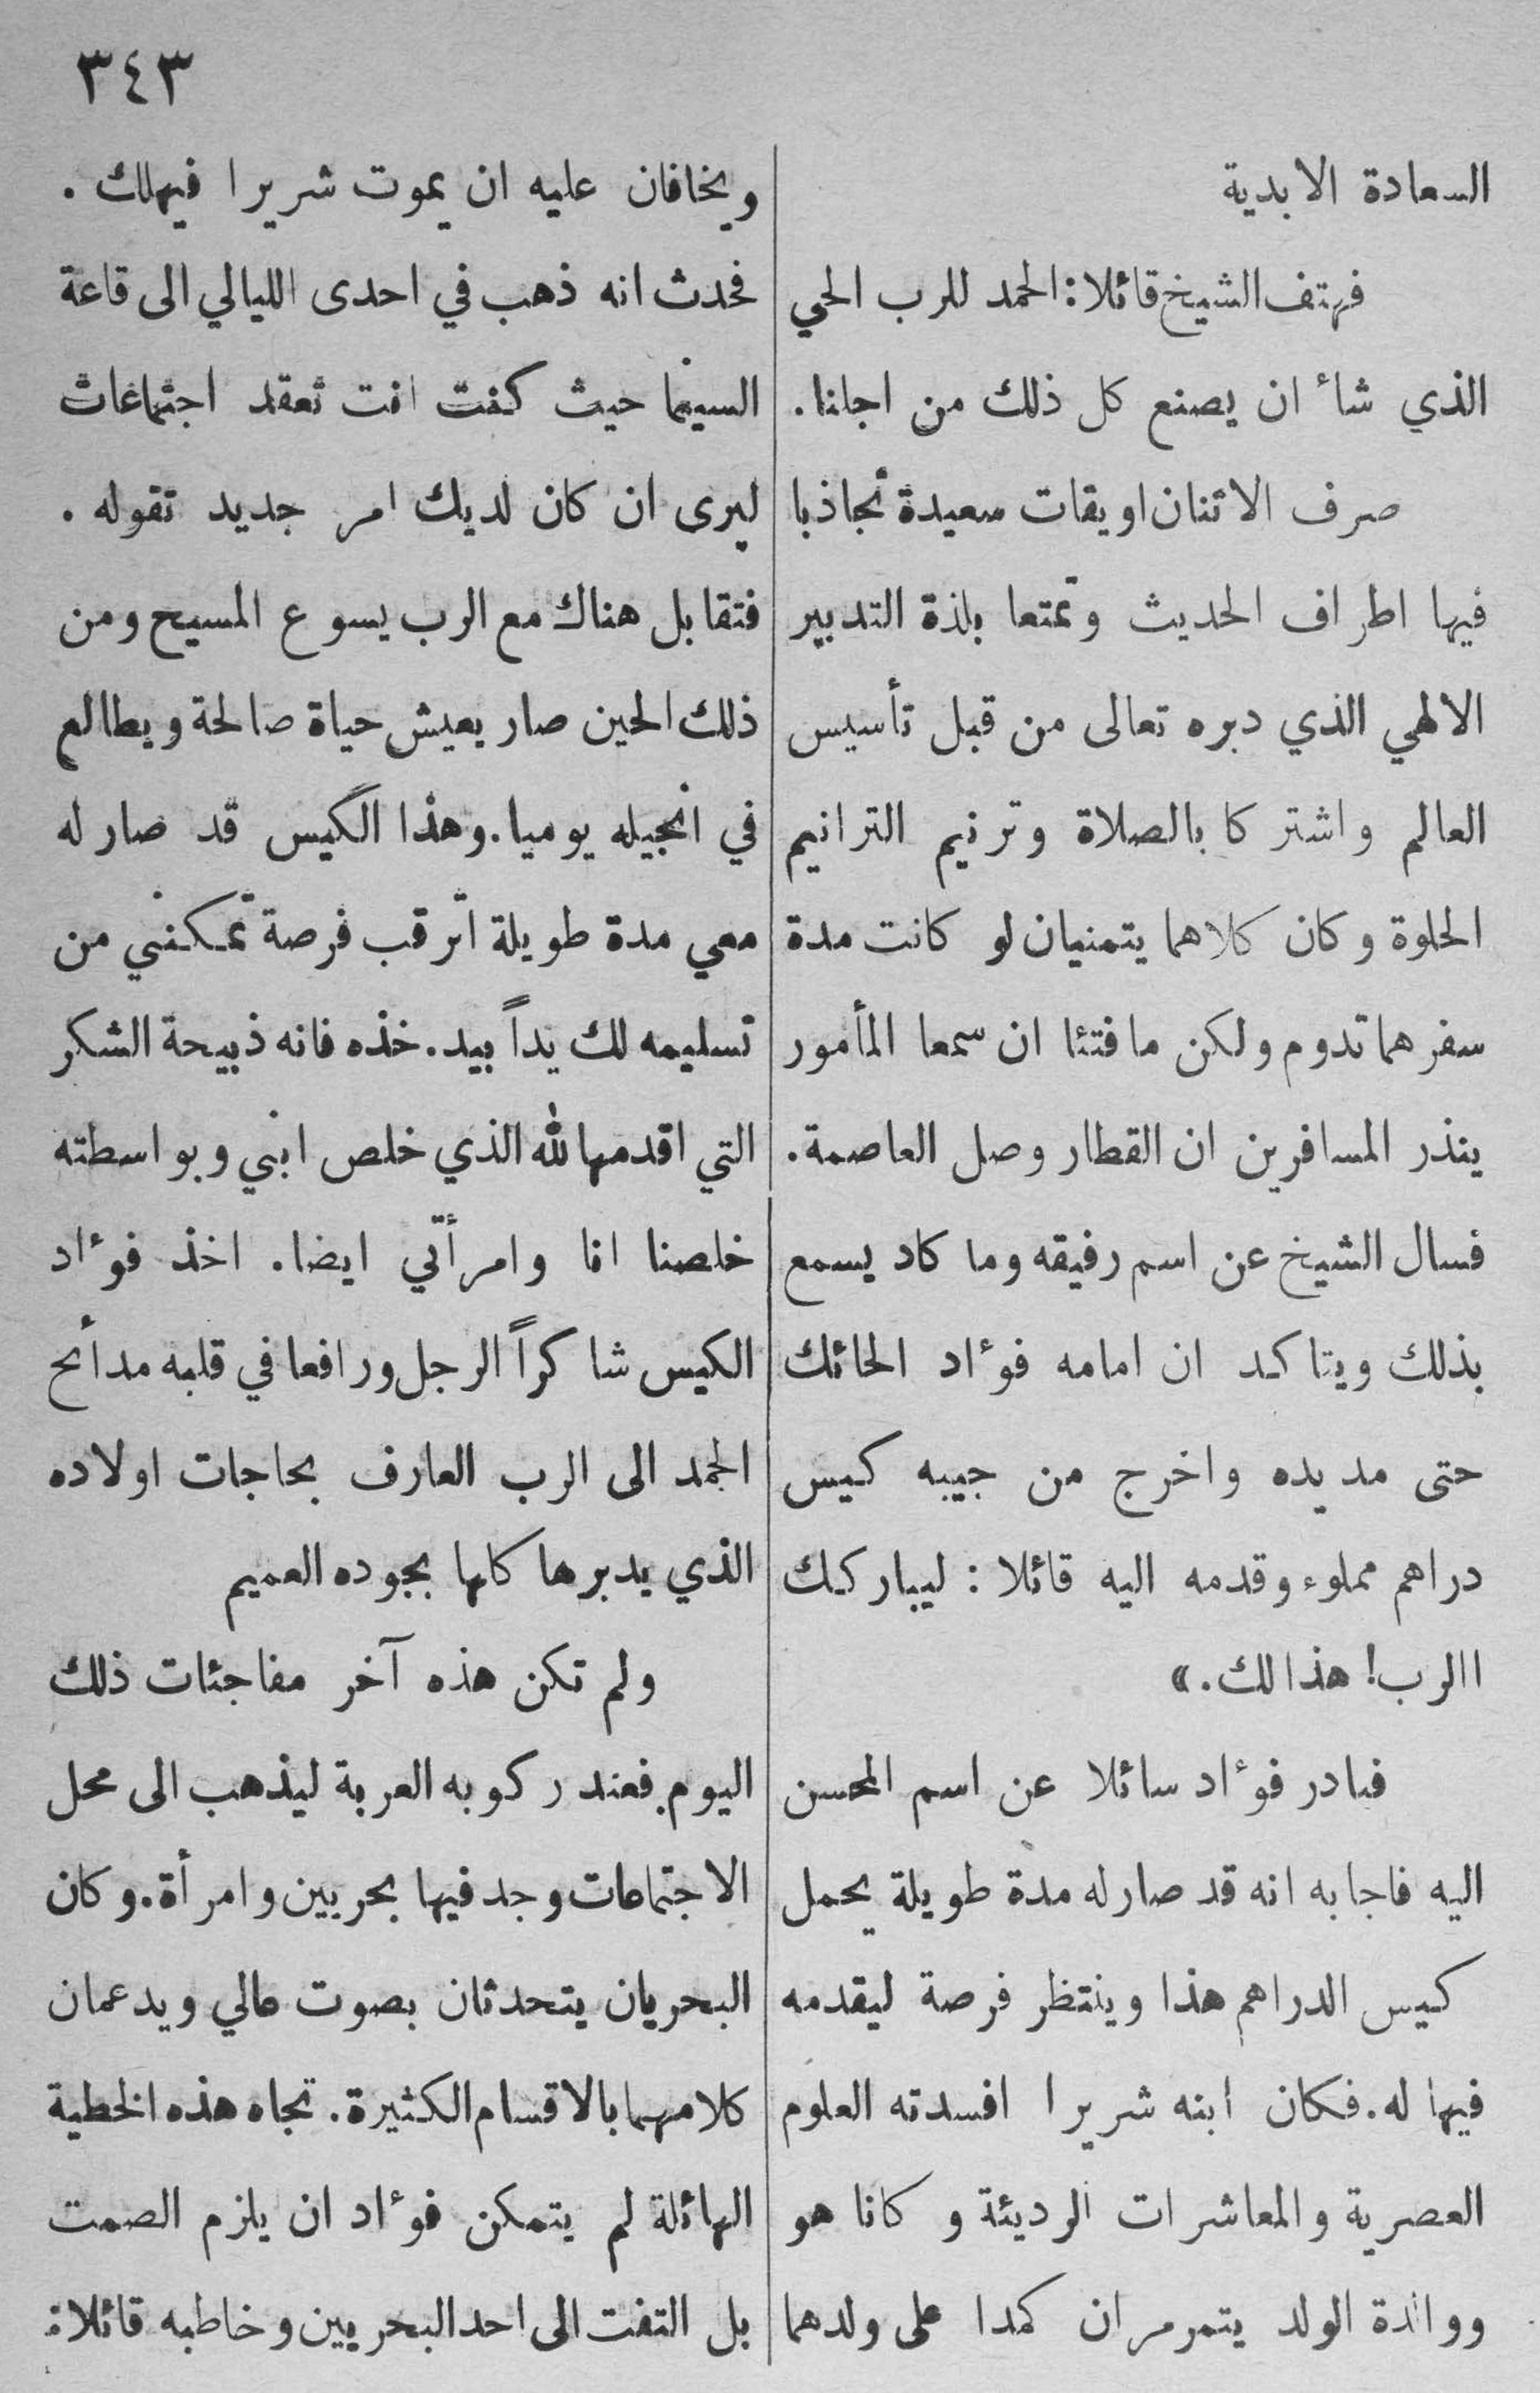 ٣٤٣
السعادة الابدية
فهتف الشيخ قائلا: الحمد للرب الحي
الذي شأ ان يصنع كل ذلك من اجلنا.
صرف الاثنان اويقات سعيدة تجاذبا
فيها اطراف الحديث وتمتعا بلذة التدبير
الالهي الذي دبره تعالى من قبل تأسيس
العالم واشتركا بالصلاة وترنيم الترانيم
الحلوة وكان كلاهما يتمنيان لو كانت مدة
سفرهما تدوم ولكن ما فتئا ان سمعا المأمور
ينذر المسافرين ان القطار وصل العاصمة.
فسال الشيخ عن اسم رفيقه وما كاد يسمع
بذلك ويتاكد ان امامه فوءاد الحائك
حتى مد يده واخرج من جيبه كيس
دراهم مملوء وقدمه اليه قائلا: ليباركك
االرب! هذا لك.»
فبادر فوءاد سائلا عن اسم المحسن
اليه فاجابه انه قد صار له مدة طويلة يحمل
كيس الدراهم هذا وينتظر فرصة ليقدمه
فيها له. فكان ابنه شريرا افسدته العلوم
العصرية والمعاشرات الرديئة وكانا هو
ووالدة الولد يتمرمران كمدا على ولدهما
ويخافان عليه ان يموت شريرا فيهلك.
فحدث انه ذهب في احدى الليالي الى قاعة
السينما حيث كنت انت تعقد اجتماعات
ليرى ان كان لديك امر جديد تقوله.
فتقابل هناك مع الرب يسوع المسيح ومن
ذلك الحين صار يعيش حياة صالحة ويطالع
في انجيله يوميا. وهذا الكيس قد صار له
معي مدة طويلة اترقب فرصة تمكنني من
تسليمه لك يداً بيد. خذه فانه ذبيحة الشكر
التي اقدمها لله الذي خلص ابني وبواسطته
خلصنا انا وامرأتي ايضا. اخذ فوءاد
الكيس شاكراً الرجل ورافعا في قلبه مدأح
الحمد الى الرب العارف بحاجات اولاده
الذي يدبرها كلها بجوده العميم
ولم تكن هذه آخر مفاجئات ذلك
اليوم. فعند ركوبه العربة ليذهب الى محل
الاجتماعات وجد فيها بحريين وامرأة. وكان
البحريان يتحدثان بصوت عالي ويدعمان
كلامهما بالاقسام الكثيرة. تجاه هذه الخطية
الهائلة لم يتمكن فوءاد ان يلزم الصمت
بل التفت الى احد البحريين وخاطبه قائلا: